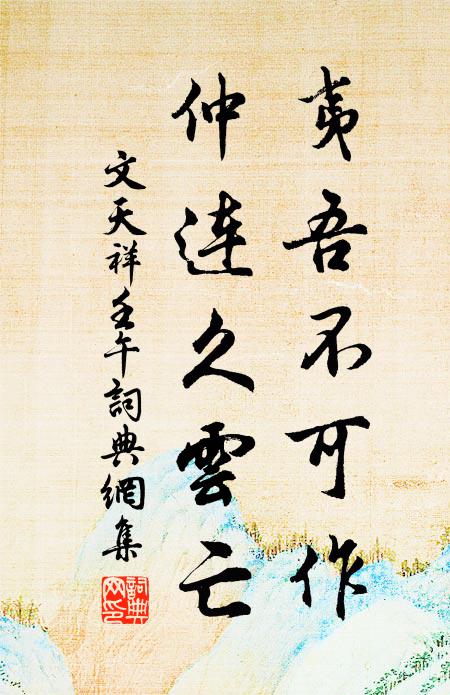 夷吾不可作
仲連久雲亡
文天祥壬午詞典網集
詞典网印